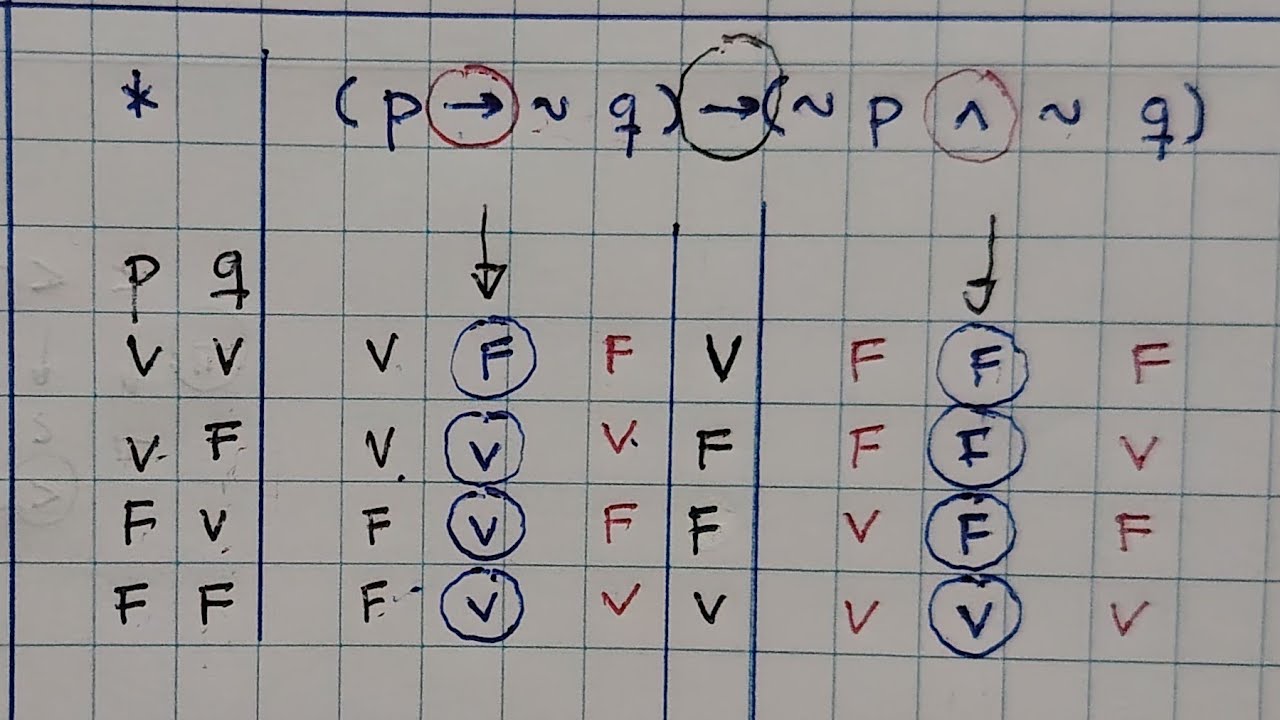 * (p → ~ q) → (~ p ∧ ~ q)
p q
V V V F F V F F F
V F V V V F F F V
F V F V F F V F F
F F F V V V V V V